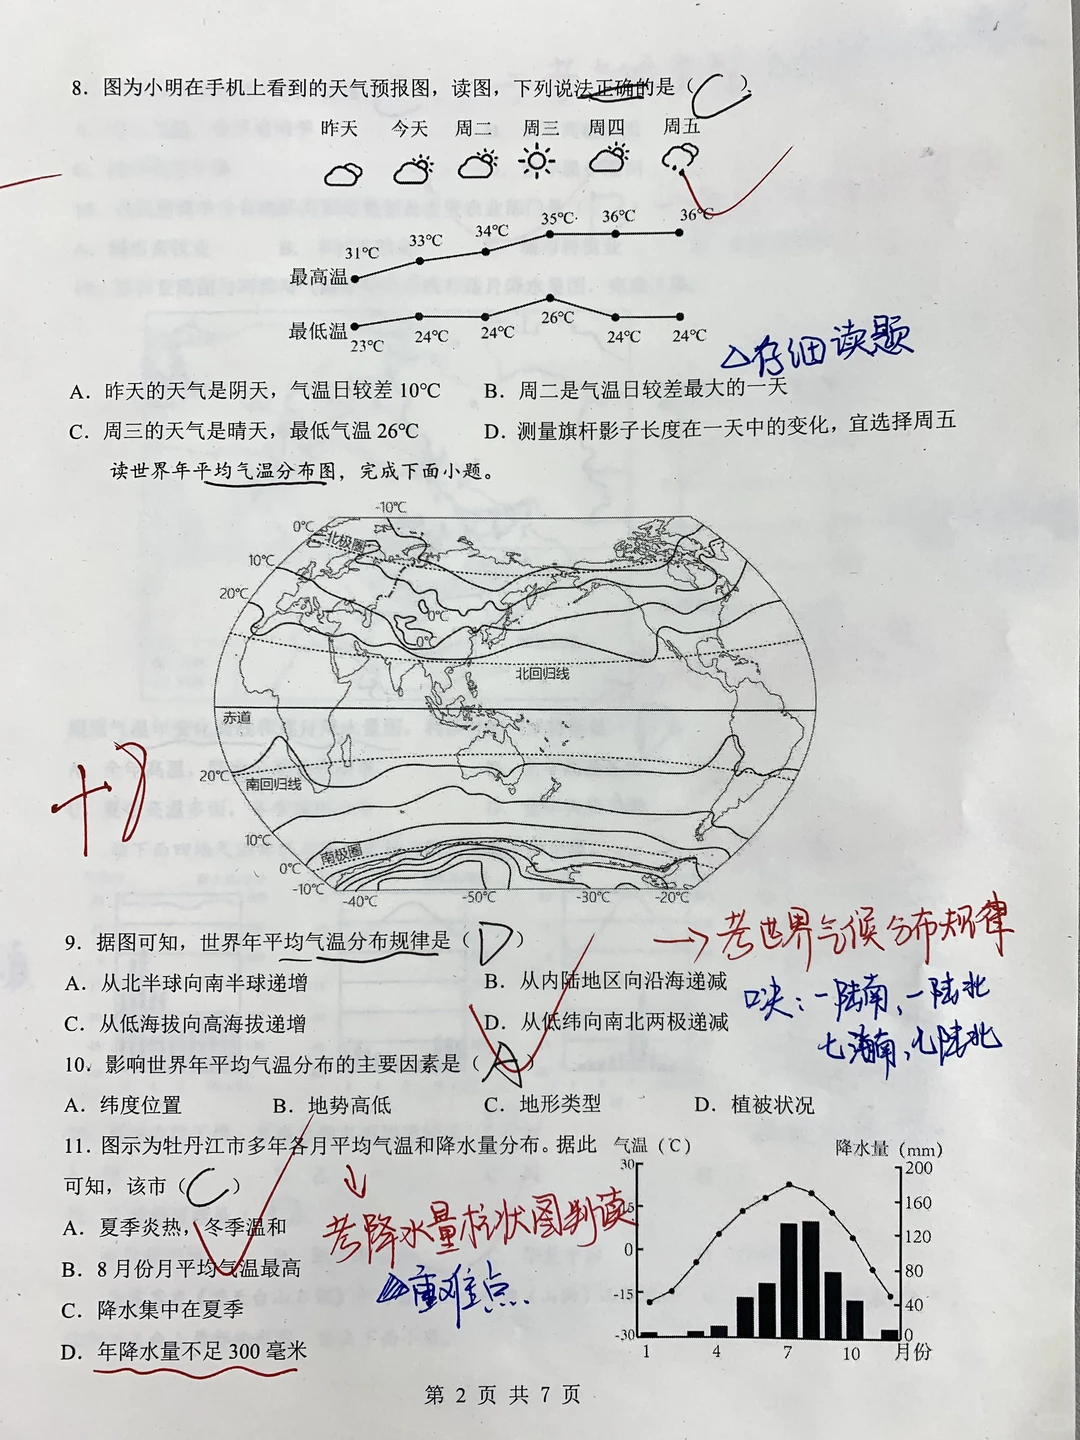 8．图为小明在手机上看到的天气预报图，读图，下列说法正确的是（C）．
昨天 今天 周二 周三 周四 周五
31℃ 33℃ 34℃ 35℃ 36℃ 36℃
最高温
最低温
23℃ 24℃ 24℃ 26℃ 24℃ 24℃
△仔细读题
A．昨天的天气是阴天，气温日较差 10℃ B．周二是气温日较差最大的一天
C．周三的天气是晴天，最低气温 26℃ D．测量旗杆影子长度在一天中的变化，宜选择周五
读世界年平均气温分布图，完成下面小题。
-10℃
0℃ 北极圈
10℃
20℃
0℃
0℃
北回归线
赤道
20℃ 南回归线
10℃
0℃ 南极圈
-10℃ -40℃ -50℃ -30℃ -20℃
+8
→考世界气候分布规律
9．据图可知，世界年平均气温分布规律是（D）
A．从北半球向南半球递增 B．从内陆地区向沿海递减
口诀：一陆南，一陆北
C．从低海拔向高海拔递增 D．从低纬向南北两极递减
七海南，七陆北
10．影响世界年平均气温分布的主要因素是（A）
A．纬度位置 B．地势高低 C．地形类型 D．植被状况
11．图示为牡丹江市多年各月平均气温和降水量分布。据此
可知，该市（C）
↓
考降水量柱状图判读
A．夏季炎热，冬季温和
B．8 月份月平均气温最高
△重难点．
C．降水集中在夏季
D．年降水量不足 300 毫米
气温（℃） 降水量（mm）
30 200
160
15 120
0 80
-15 40
-30 0
1 4 7 10 月份
第 2 页 共 7 页